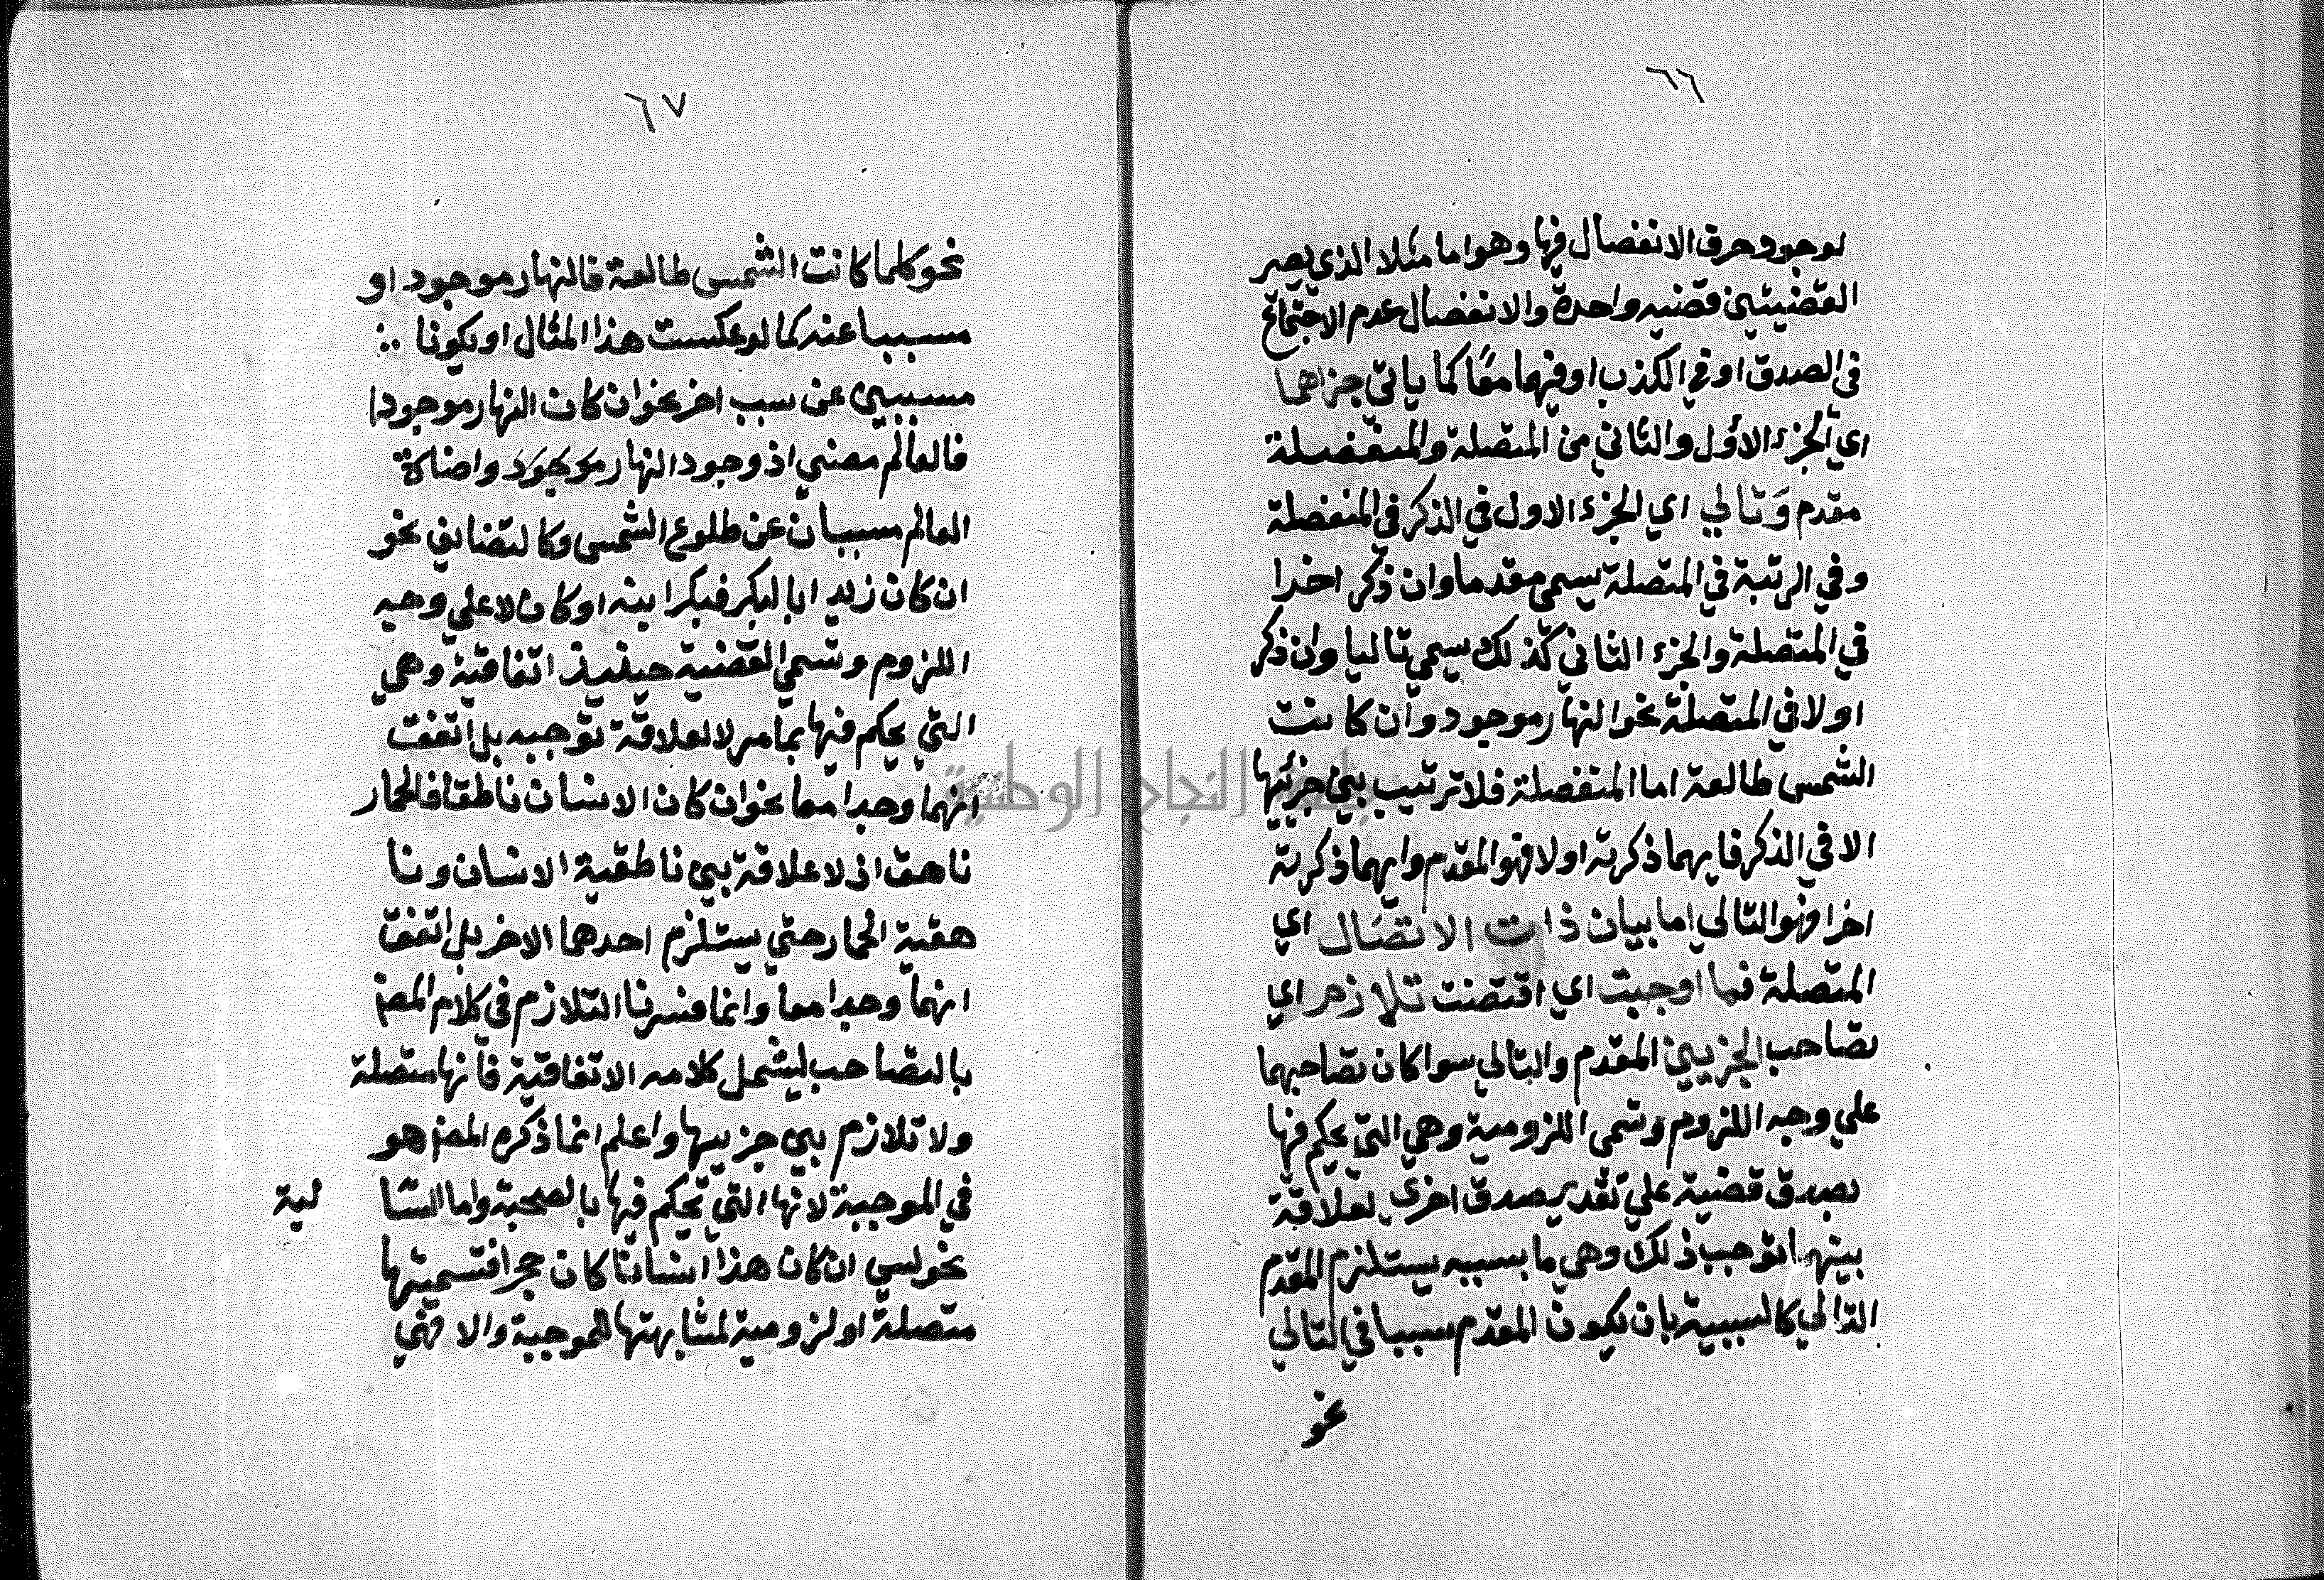 ٦٦
لوجود حرف الانفصال فيها وهو اما مثلا الذي يصير
القضيتين قضيه واحدة والانفصال عدم الاجتماع
في الصدق او في الكذب او فيهما معًا كما ياتي جزاهما
اي الجزء الاول والثاني من المتصلة والمنفصلة
مقدم وَتالي اي الجزء الاول في الذكر في المنفصلة
وفي الرتبة في المتصلة يسمى مقدما وان ذكر اخرا
في المتصلة والجزء الثاني كذلك يسمي تاليا وان ذكر
اولا في المتصلة نحو النهار موجود وان كانت
الشمس طالعة اما المنفصلة فلا ترتيب بين جزئيها
الا في الذكر فايهما ذكرته اولا فهو المقدم وايهما ذكرته
اخرا فهو التالي اما بيان ذات الاتصال اي
المتصلة فما اوجبت اي اقتضت تلازم اي
تصاحب الجزيين المقدم والتالي سوا كان تصاحبهما
علي وجه اللزوم وتسمى اللزومية وهي التي يحكم فيها
بصدق قضية علي تقدير صدق اخرى لعلاقة
بينهما توجب ذلك وهي ما بسببه يستلزم المقدم
التالي كالسببية بان يكون المقدم سببا في التالي
نحو
٦٧
نحو كلما كانت الشمس طالعة فالنهار موجود او
مسببا عنه كما لو عكست هذا المثال او يكونا
مسببين عن سبب اخر نحو ان كان النهار موجودا
فالعالم مضي اذ وجود النهار موجود واضاءة
العالم مسببان عن طلوع الشمس وكالتضايف نحو
ان كان زيد ابا لبكر فبكر ابنه او كان لا علي وجه
اللزوم وتسمي القضية حينيذ اتفاقية وهي
التي يحكم فيها بما مر لا لعلاقة توجبه بل اتفقت
انهما وجدا معا نحو ان كان الانسان ناطقا فالحمار
ناهق اذ لا علاقة بين ناطقية الانسان ونا
هقية الحمار حتي يستلزم احدهما الاخر بل اتفقا
انهما وجدا معا وانما فسرنا التلازم في كلام المص
بالتصاحب ليشمل كلامه الاتفاقية فانها متصلة
ولا تلازم بين جزييها واعلم انما ذكره المص هو
في الموجبة لانها التي يحكم فيها بالصحبة واما السا لبة
نحو ليس ان كان هذا انسانا كان حجرا فتسميتها
متصلة او لزومية لمشابهتها للموجبة والا فهي
جامعة النجاح الوطنية